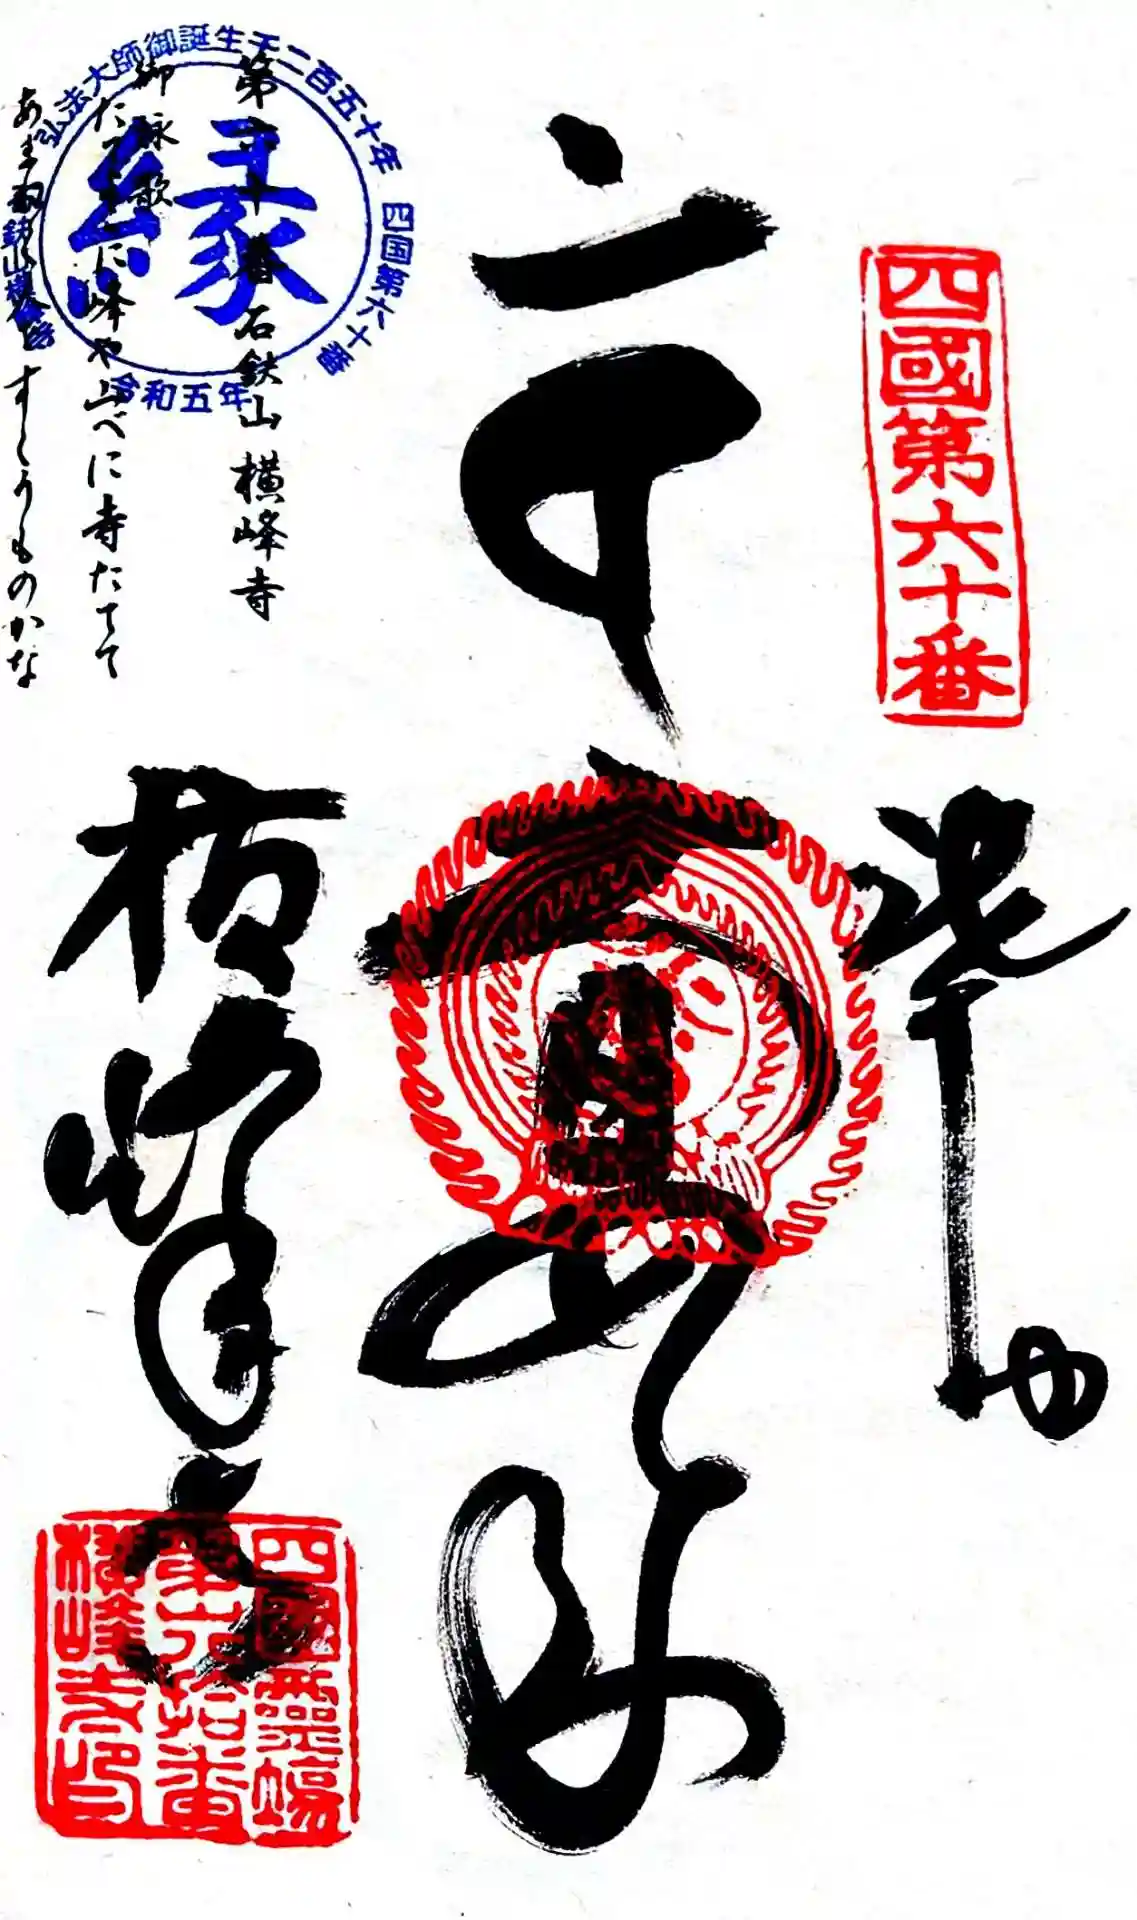 四國第六十番
奉
大日如来
横峰寺
弘法大師御誕生千二百五十年
四国第六十番
石鈇山横峰寺
令和五年
縁
第六十番 石鈇山 横峰寺
御詠歌
たてよこに峰や山べに寺たてて
あまねく
すくうものかな
四國霊場
第六拾番
横峰寺印